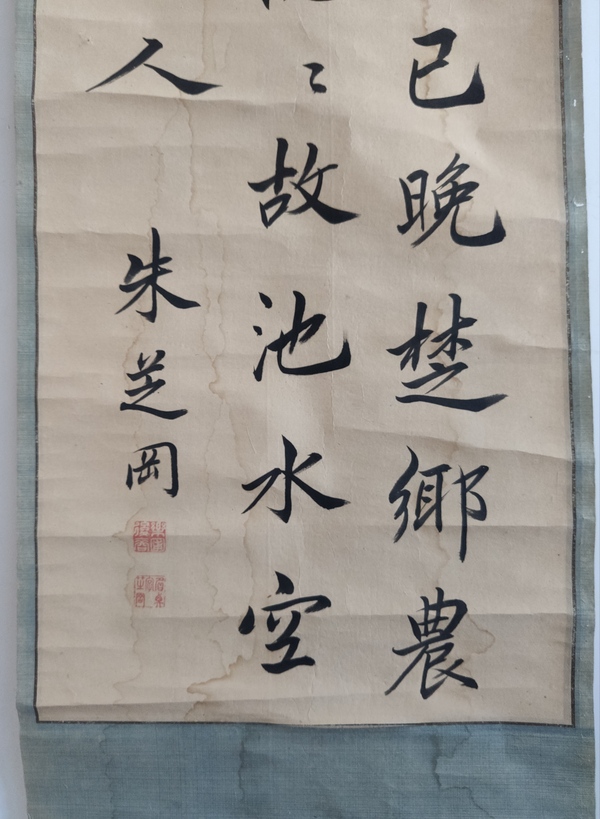 已晚楚鄉農
〻故池水空
人
朱芝岡